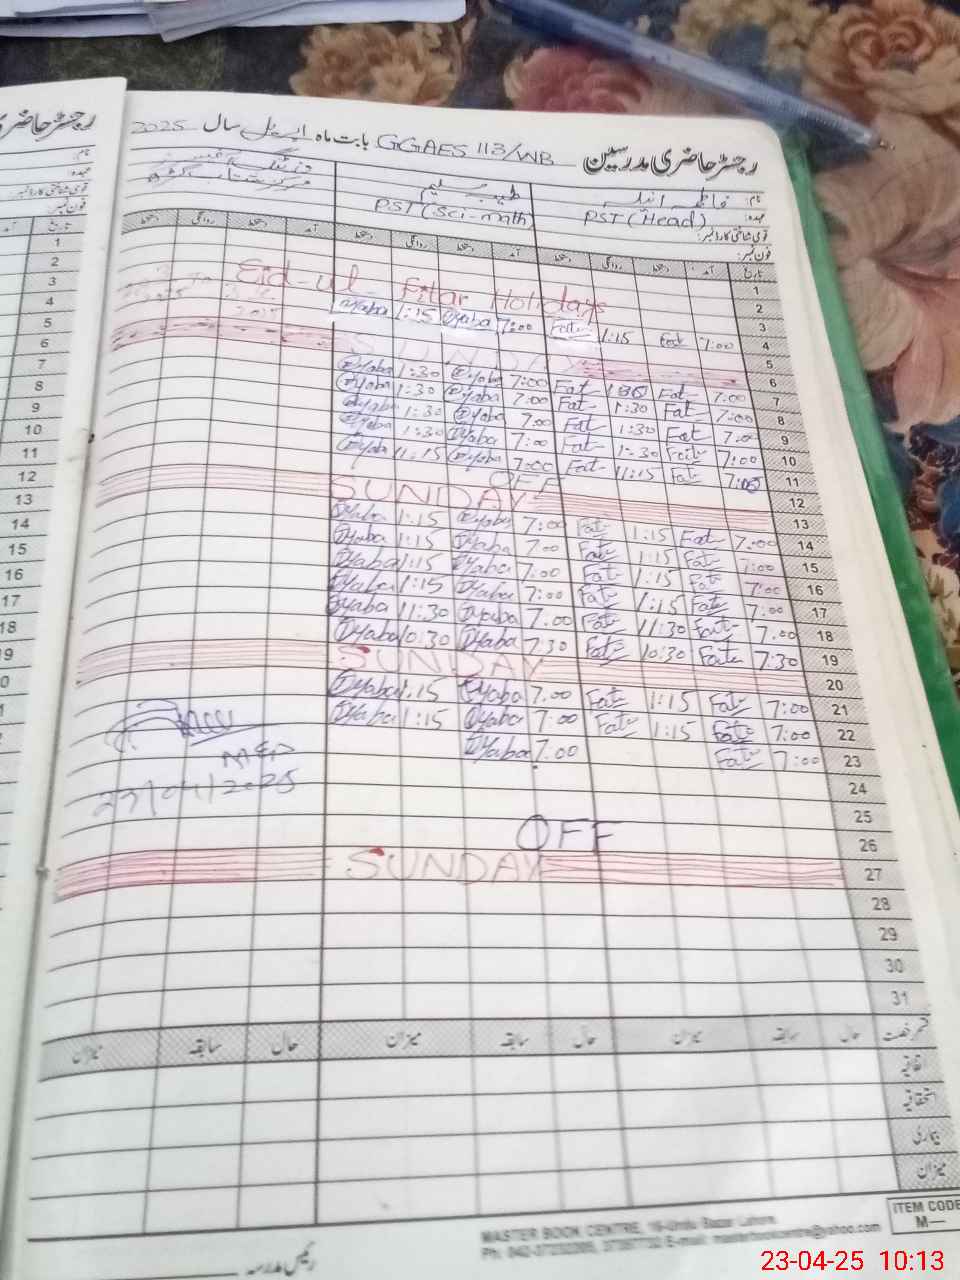 رجسٹر حاضری مدرسین GGAES 113/WB بابت ماہ اپریل سال 2025
رجسٹر حاضری
نام: فاطمہ طیبہ سلیم
عہدہ: PST (Head) PST (Sci-math)
قومی شناختی کارڈ نمبر:
فون نمبر:
تاریخ آمد دستخط روانگی دستخط آمد دستخط روانگی دستخط آمد دستخط روانگی دستخط
1
2 Eid-ul-Fitar Holidays
3
4 7:00 Fat 1:15 Fat 7:00 Tyaba 1:15 Tyaba
5
6 SUNDAY
7 7:00 Fat 1:30 Fat 7:00 Tyaba 1:30 Tyaba
8 7:00 Fat 1:30 Fat 7:00 Tyaba 1:30 Tyaba
9 7:00 Fat 1:30 Fat 7:00 Tyaba 1:30 Tyaba
10 7:00 Fat 1:30 Fat 7:00 Tyaba 1:30 Tyaba
11 7:00 Fat 11:15 Fat 7:00 Tyaba 11:15 Tyaba
12 OFF
13 SUNDAY
14 7:00 Fat 1:15 Fat 7:00 Tyaba 1:15 Tyaba
15 7:00 Fat 1:15 Fat 7:00 Tyaba 1:15 Tyaba
16 7:00 Fat 1:15 Fat 7:00 Tyaba 1:15 Tyaba
17 7:00 Fat 1:15 Fat 7:00 Tyaba 1:15 Tyaba
18 7:00 Fat 11:30 Fat 7:00 Tyaba 11:30 Tyaba
19 7:30 Fat 10:30 Fat 7:30 Tyaba 10:30 Tyaba
20 SUNDAY
21 7:00 Fat 1:15 Fat 7:00 Tyaba 1:15 Tyaba
22 7:00 Fat 1:15 Fat 7:00 Tyaba 1:15 Tyaba
23 7:00 Fat 7:00 Tyaba
23/04/2025
24
25
26 OFF
27 SUNDAY
28
29
30
31
قسم رخصت حال سابقہ میزان حال سابقہ میزان حال سابقہ میزان
اتفاقیہ
استحقاقیہ
بیماری
میزان
رئیس مدرسہ
MASTER BOOK CENTRE, 16-Urdu Bazar Lahore
ITEM CODE
M—
23-04-25 10:13